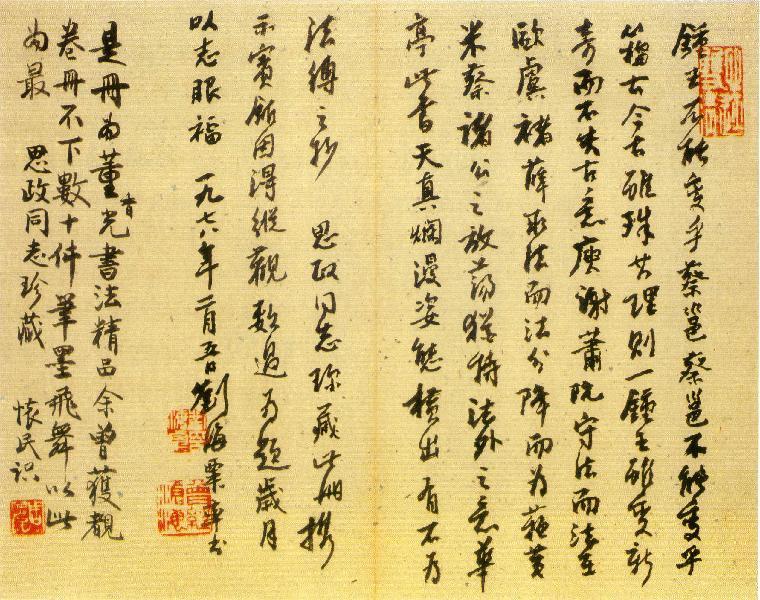 鍾王不能變乎蔡邕蔡邕不能變乎
籀古今古雖殊其理則一鍾王雖變新
奇而不失古意庾謝蕭阮守法而法在
歐虞褚薛取法而法分降而為蘇黃
米蔡諸公之放蕩猶持法外之意華
亭此書天真爛漫姿態橫出有不為
法縛之妙 思政同志珍藏此冊攜
示賓館因得縱觀數過為題歲月
以志眼福 一九七八年 劉海粟
是冊為董香光書法精品余曾獲觀
卷冊不下數十件筆墨飛舞以此
為最 思政同志珍藏 懷民識